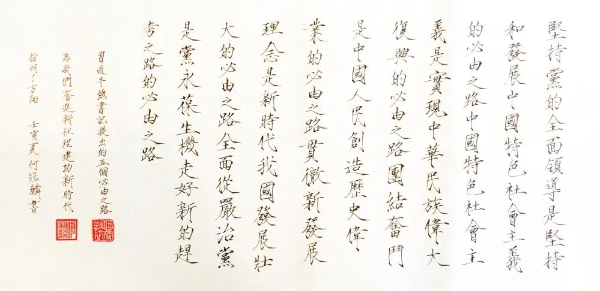 堅持黨的全面領導是堅持
和發展中國特色社會主義
的必由之路中國特色社會主
義是實現中華民族偉大
復興的必由之路團結奮鬥
是中國人民創造歷史偉
業的必由之路貫徹新發展
理念是新時代我國發展壯
大的必由之路全面從嚴治黨
是黨永葆生機走好新的趕
考之路的必由之路
習近平總書記提出的五個必由之路
為我們奮進新征程建功新時代
指明了方向 壬寅夏 何 書